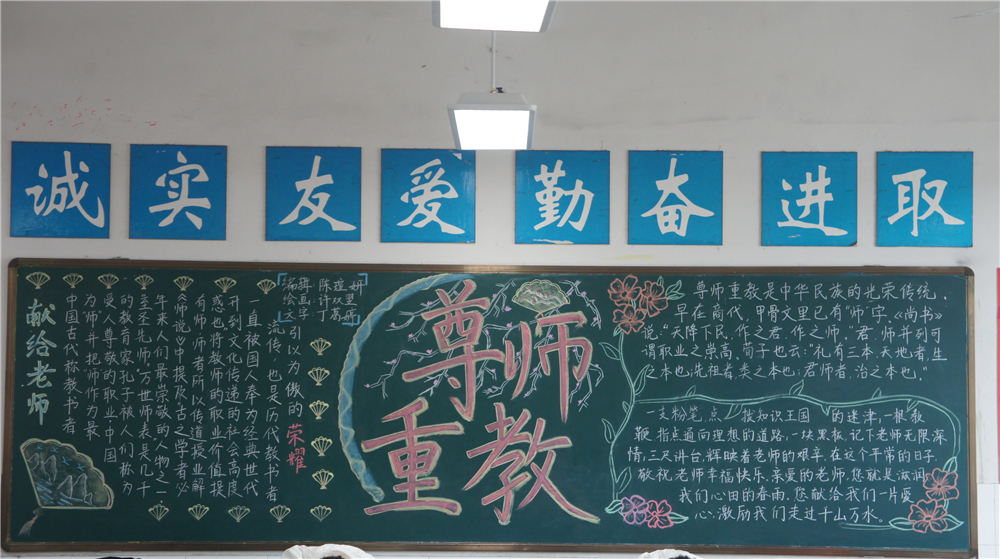 诚实友爱勤奋进取
献给老师
中国古代称教书者
为"师",并把"师"作为最
受人尊敬的职业,中国
的教育家孔子被人们称为
至圣先师,万世师表,是几千
年来人们最崇敬的人物之一
《师说》中提及古之学者必
有师,师者所以传道授业解
惑也,将教师的职业价值提
升到文化传递的社会高度
一直被国人奉为经典,世代
流传,也是历代教书者
引以为傲的荣耀
编辑 陈
绘画 许双
文字 丁
尊师
重教
尊师重教是中华民族的光荣传统,
早在商代,甲骨文里已有"师"字,《尚书》
说:"天降下民,作之君,作之师,"君,师并列可
谓职业之崇高,荀子也云:"礼有三本,天地者,生
之本也;先祖者,类之本也;君师者,治之本也,"
一支粉笔,点拨知识王国的迷津,一根教
鞭,指点通向理想的道路,一块黑板,记下老师无限深
情,三尺讲台,辉映着老师的艰辛,在这个平常的日子,
敬祝老师幸福快乐,亲爱的老师,您就是滋润
我们心田的春雨,您献给我们一片爱
心,激励我们走过千山万水。